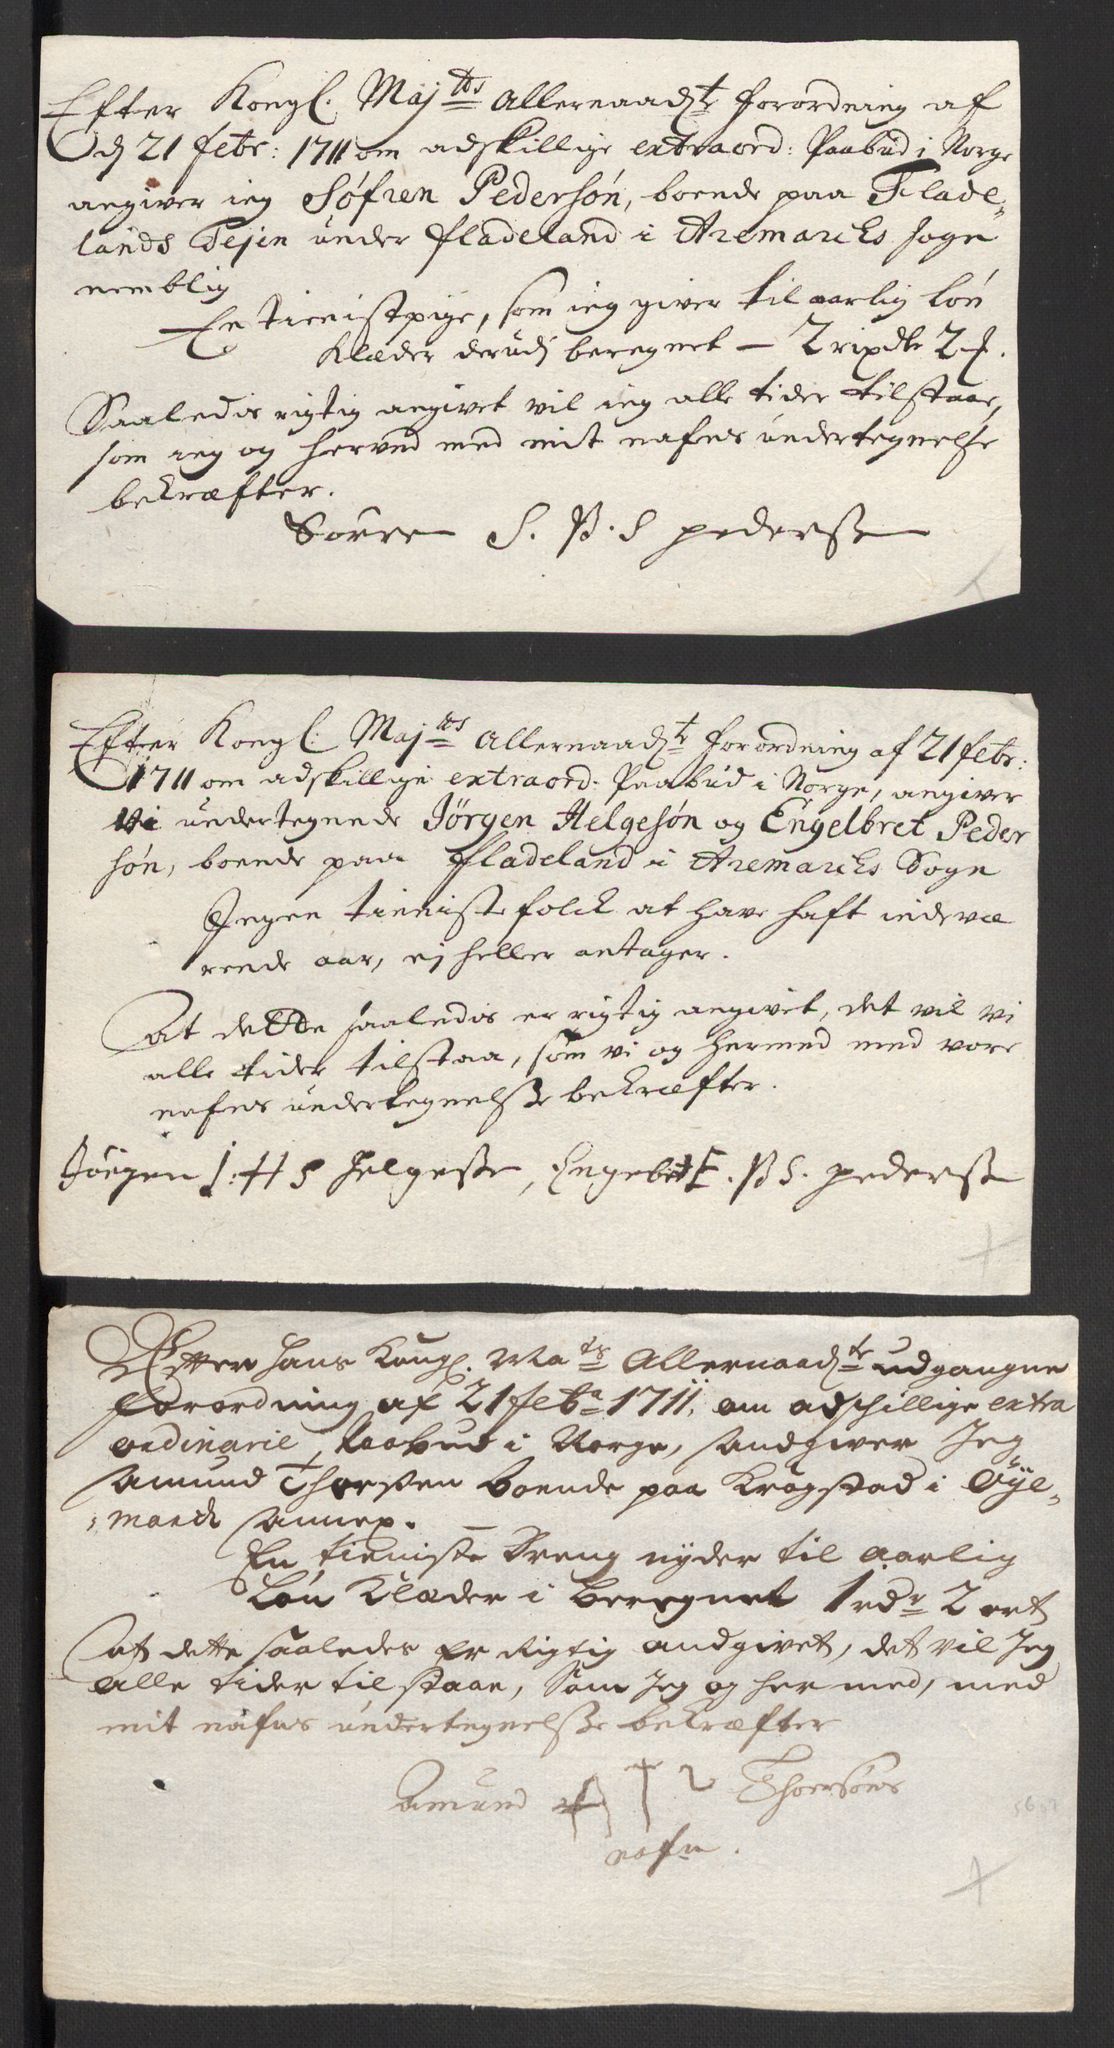 Efter Kongl. Maj:ts Allernaadste forordning af
d 21 febr: 1711 om adskillige extraord: Paabud i Norge
angiver ieg Søfren Pedersøn, boende paa Flade-
lands Tejen under fladeland i Aremarcks sogn
nemblig
En tienistpige, som ieg giver til aarlig løn
Klæder derudj beregnet - 2 rixdlr 2
Saaledis rigtig angivet vil ieg alle tider tilstaae,
som ieg og hermed med mit nafns undertegnelse
bekræfter.
Sører S. P. S pederss
Efter Kongl: Maj:ts Allernaadste forordning af 21 febr:
1711 om adskillige extraord: Paabud i Norge, angiver
Vi undertegnede Jørgen Helgesøn og Engelbret Peder
søn, boende paa fladeland i Aremarcks Sogn
Ingen tieniste folck at have haft indevæ
rende aar, ej heller antager.
At dette saaledis er rigtig angivet, det vil vi
alle tider tilstaa, som vi og hermed med vore
nafns undertegnelsse bekræfter.
Jørgen I: H S Helgesse, Engebret E. P S. pederss
Efter Hans Kongl. Mats Allernaadste udgangne
forordning af 21 feb: 1711, om adschillige extra
ordinarie Paabud i Norge, andgiver Jeg
Amund Thorssen boende paa Krogstad i Øye-
marck Annex.
En tieniste Dreng nyder til aarlig
Løn Klæder i beregnet 1 rdr 2 ort
At dette saaledes er Rigtig andgivet, det vil Jeg
alle tider til staae, Som Jeg og her med, med
mit nafns undertegnelsse bekræfter
Amund Thorsøns
nafn.